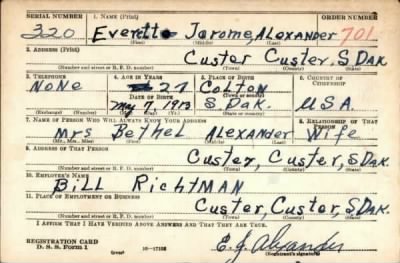 SERIAL NUMBER 1. NAME (Print) ORDER NUMBER
320 Everett Jerome, Alexander 701
(First) (Middle) (Last)
2. ADDRESS (Print)
Custer Custer, S Dak.
(Number and street or R. F. D. number) (Town) (County) (State)
3. TELEPHONE 4. AGE IN YEARS 5. PLACE OF BIRTH 6. COUNTRY OF CITIZENSHIP
None 27 Colton
DATE OF BIRTH (Town or county)
May 7, 1913 S Dak. U.S.A.
(Exchange) (Number) (Mo.) (Day) (Yr.) (State or country)
7. NAME OF PERSON WHO WILL ALWAYS KNOW YOUR ADDRESS 8. RELATIONSHIP OF THAT PERSON
Mrs Bethel Alexander Wife
(Mr., Mrs., Miss) (First) (Middle) (Last)
9. ADDRESS OF THAT PERSON
Custer, Custer, S Dak.
(Number and street or R. F. D. number) (Town) (County) (State)
10. EMPLOYER'S NAME
Bill Richtman
11. PLACE OF EMPLOYMENT OR BUSINESS
Custer, Custer, S Dak.
(Number and street or R. F. D. number) (Town) (County) (State)
I AFFIRM THAT I HAVE VERIFIED ABOVE ANSWERS AND THAT THEY ARE TRUE.
REGISTRATION CARD
D. S. S. Form 1 (over) E. J. Alexander
(Registrant's signature)